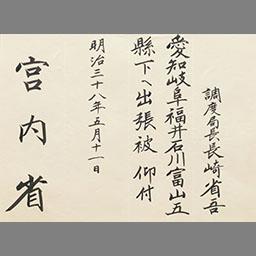 調度局長長崎省吾
愛知岐阜福井石川富山五
縣下へ出張被 仰付
明治三十八年五月十一日
宮内省